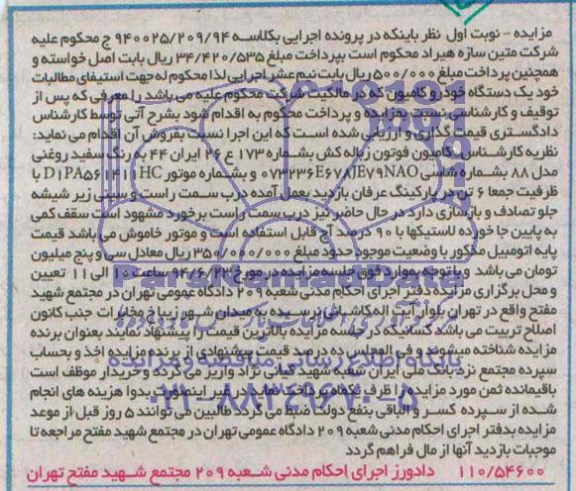 مزایده - نوبت اول نظر باینکه در پرونده اجرایی بکلاسه ۹۴۰۰۲۵/۲۰۹/۹۴ ج محکوم علیه
شرکت متین سازه هیراد محکوم است بپرداخت مبلغ ۳۴/۴۲۰/۵۳۵ ریال بابت اصل خواسته و
همچنین پرداخت مبلغ ۵۰۰/۰۰۰ ریال بابت نیم عشر اجرایی لذا محکوم له جهت استیفای مطالبات
خود یک دستگاه خودرو کامیون که در مالکیت شرکت محکوم علیه می باشد را معرفی که پس از
توقیف و کارشناسی نسبت بمزایده و پرداخت محکوم به اقدام شود بشرح آتی توسط کارشناس
دادگستری قیمت گذاری و ارزیابی شده است که این اجرا نسبت بفروش آن اقدام می نماید:
نظریه کارشناس: کامیون فوتون زباله کش بشماره ۱۷۳ ع ۲۶ ایران ۴۴ به رنگ سفید روغنی
مدل ۸۸ بشماره شاسی ۰۷۳۲۳۶E۶۷۸JE۷۹NAO و بشماره موتور D۱PA۵۶۱۴۱HC با
ظرفیت جمعا ۶ تن در پارکینگ عرفان بازدید بعمل آمده درب سمت راست و سینی زیر شیشه
جلو تصادف و بازسازی دارد در حال حاضر نیز درب سمت راست برخورد مشهود است سقف کمی
به پایین جا خورده لاستیکها با ۹۰ درصد آج قابل استفاده است و موتور خاموش می باشد قیمت
پایه اتومبیل مذکور با وضعیت موجود حدود مبلغ ۳۵۰/۰۰۰/۰۰۰ ریال معادل سی و پنج میلیون
تومان می باشد و با توجه بموارد فوق جلسه مزایده در مورخ ۹۴/۶/۲۳ ساعت ۱۰ الی ۱۱ تعیین
و محل برگزاری مزایده دفتر اجرای احکام مدنی شعبه ۲۰۹ دادگاه عمومی تهران در مجتمع شهید
مفتح واقع در تهران بلوار آیت اله کاشانی نرسیده به میدان شهر زیبا خ مخابرات جنب کانون
اصلاح تربیت می باشد کسانیکه در جلسه مزایده بالاترین قیمت را پیشنهاد نمایند بعنوان برنده
مزایده شناخته میشوند و فی المجلس ده درصد قیمت پیشنهادی از برنده مزایده اخذ و بحساب
سپرده مجتمع نزد بانک ملی ایران شعبه شهید کیانی نژاد واریز می گردد و خریدار موظف است
باقیمانده ثمن مورد مزایده را ظرف یکماه پرداخت نماید در غیر اینصورت بدوا هزینه های انجام
شده از سپرده کسر و الباقی بنفع دولت ضبط می گردد طالبین می توانند ۵ روز قبل از موعد
مزایده بدفتر اجرای احکام مدنی شعبه ۲۰۹ دادگاه عمومی تهران در مجتمع شهید مفتح مراجعه تا
موجبات بازدید آنها از مال فراهم گردد
۱۱۰/۵۴۶۰۰ دادورز اجرای احکام مدنی شعبه ۲۰۹ مجتمع شهید مفتح تهران
۰۲۱-۸۸۳۴۹۶۷۰-۵